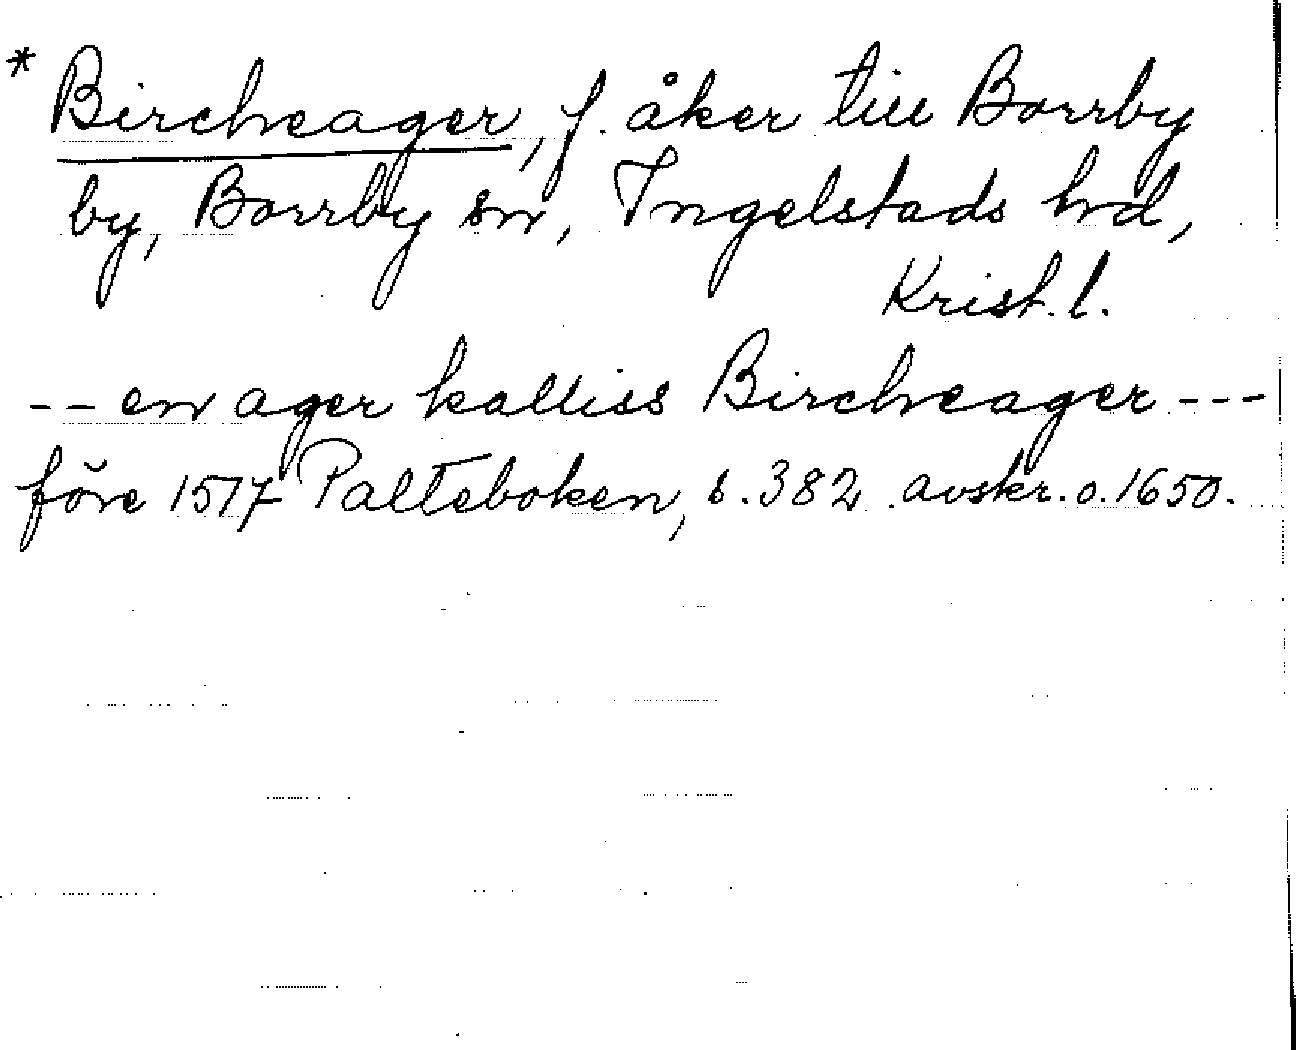 * Bircheager, f. åker till Borrby
by, Borrby sn, Ingelstads hd,
Krist. l.
-- en ager kalliss Bircheager ---
före 1517 Palteboken, s. 382 avskr. o. 1650.